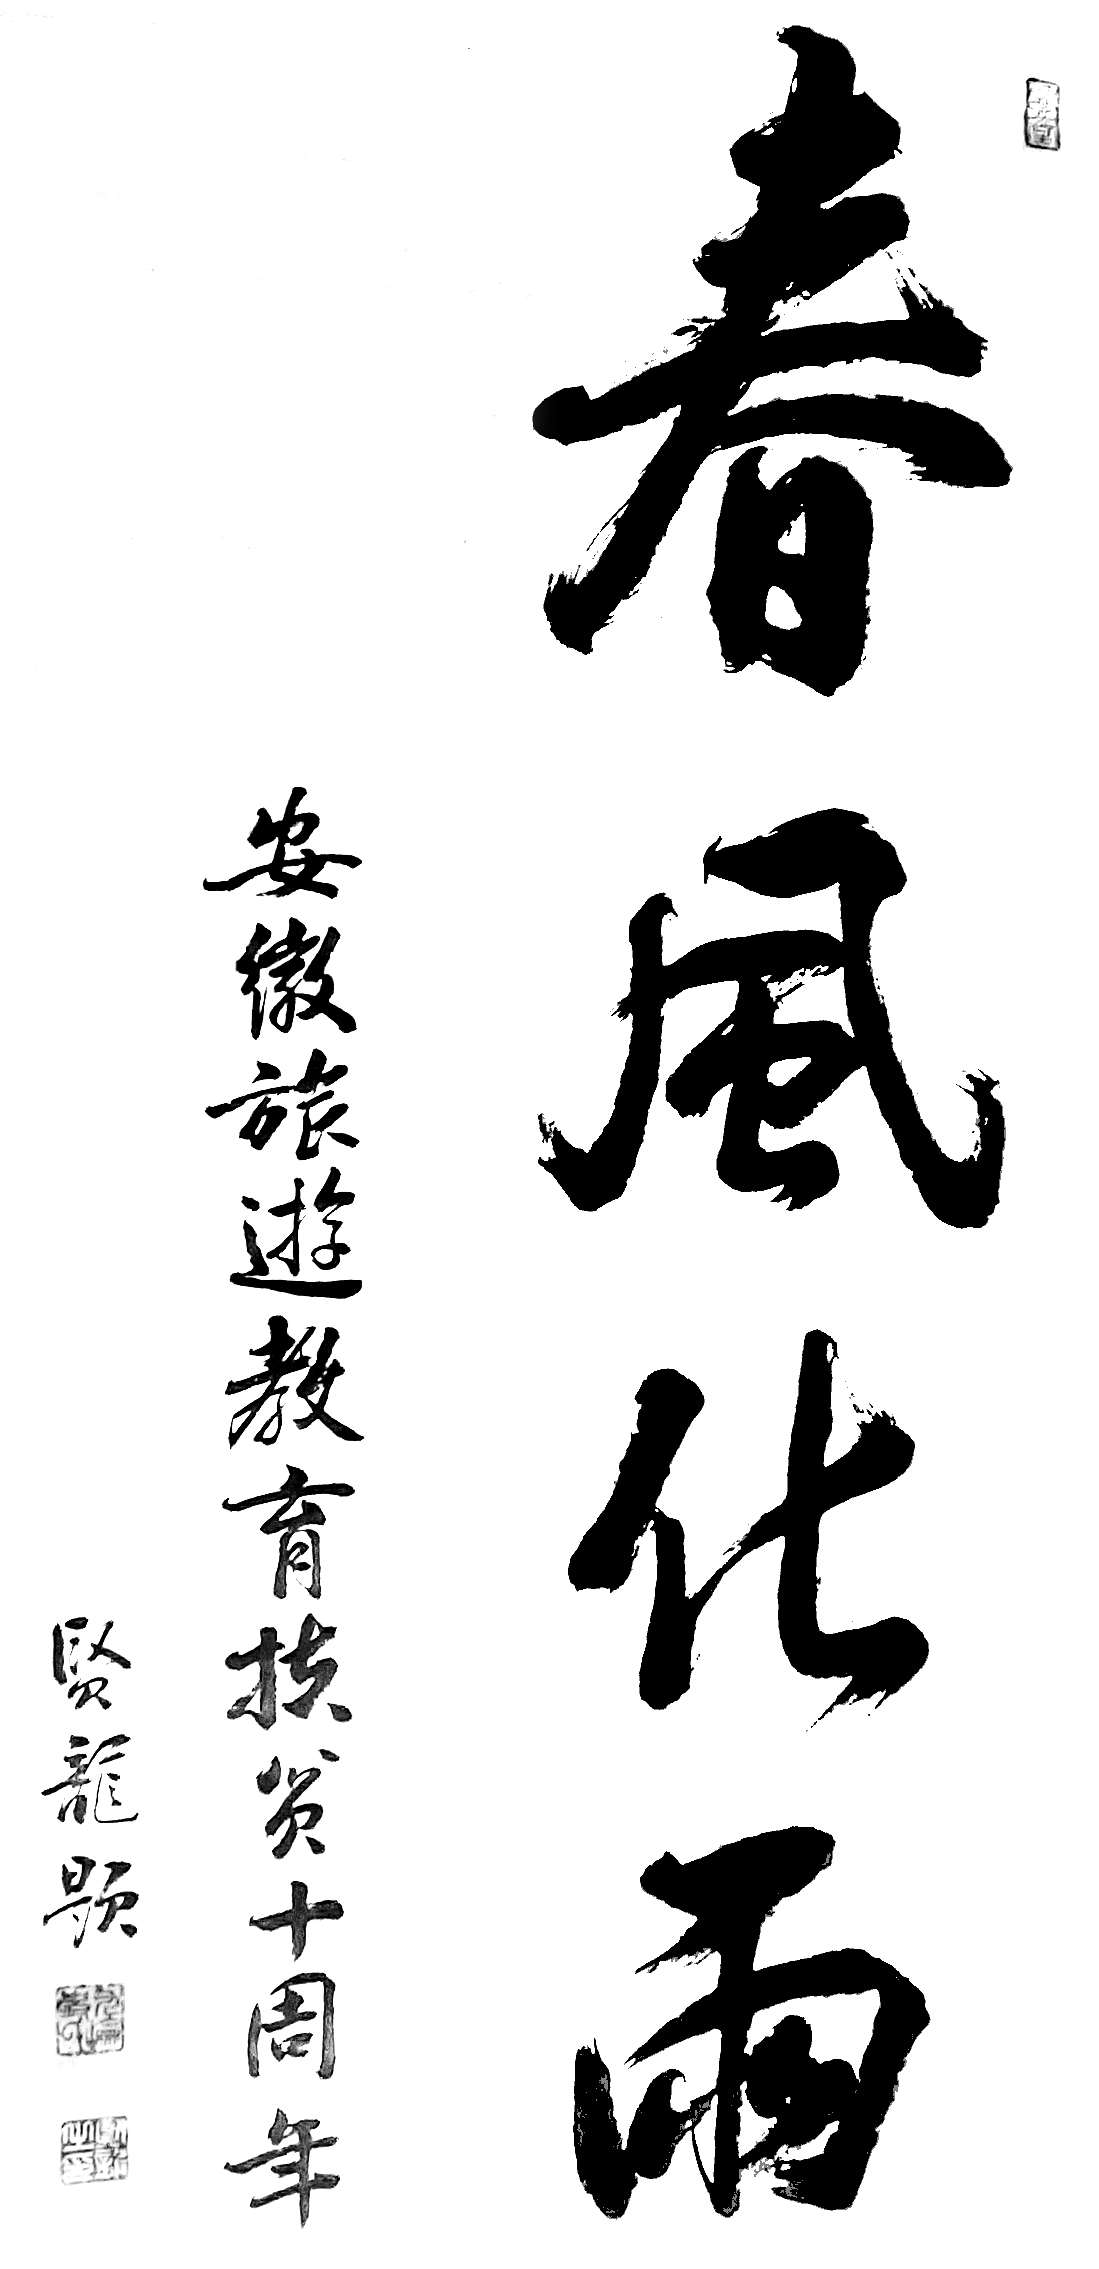 春風化雨
安徽旅遊教育扶貧十周年
賢龍題